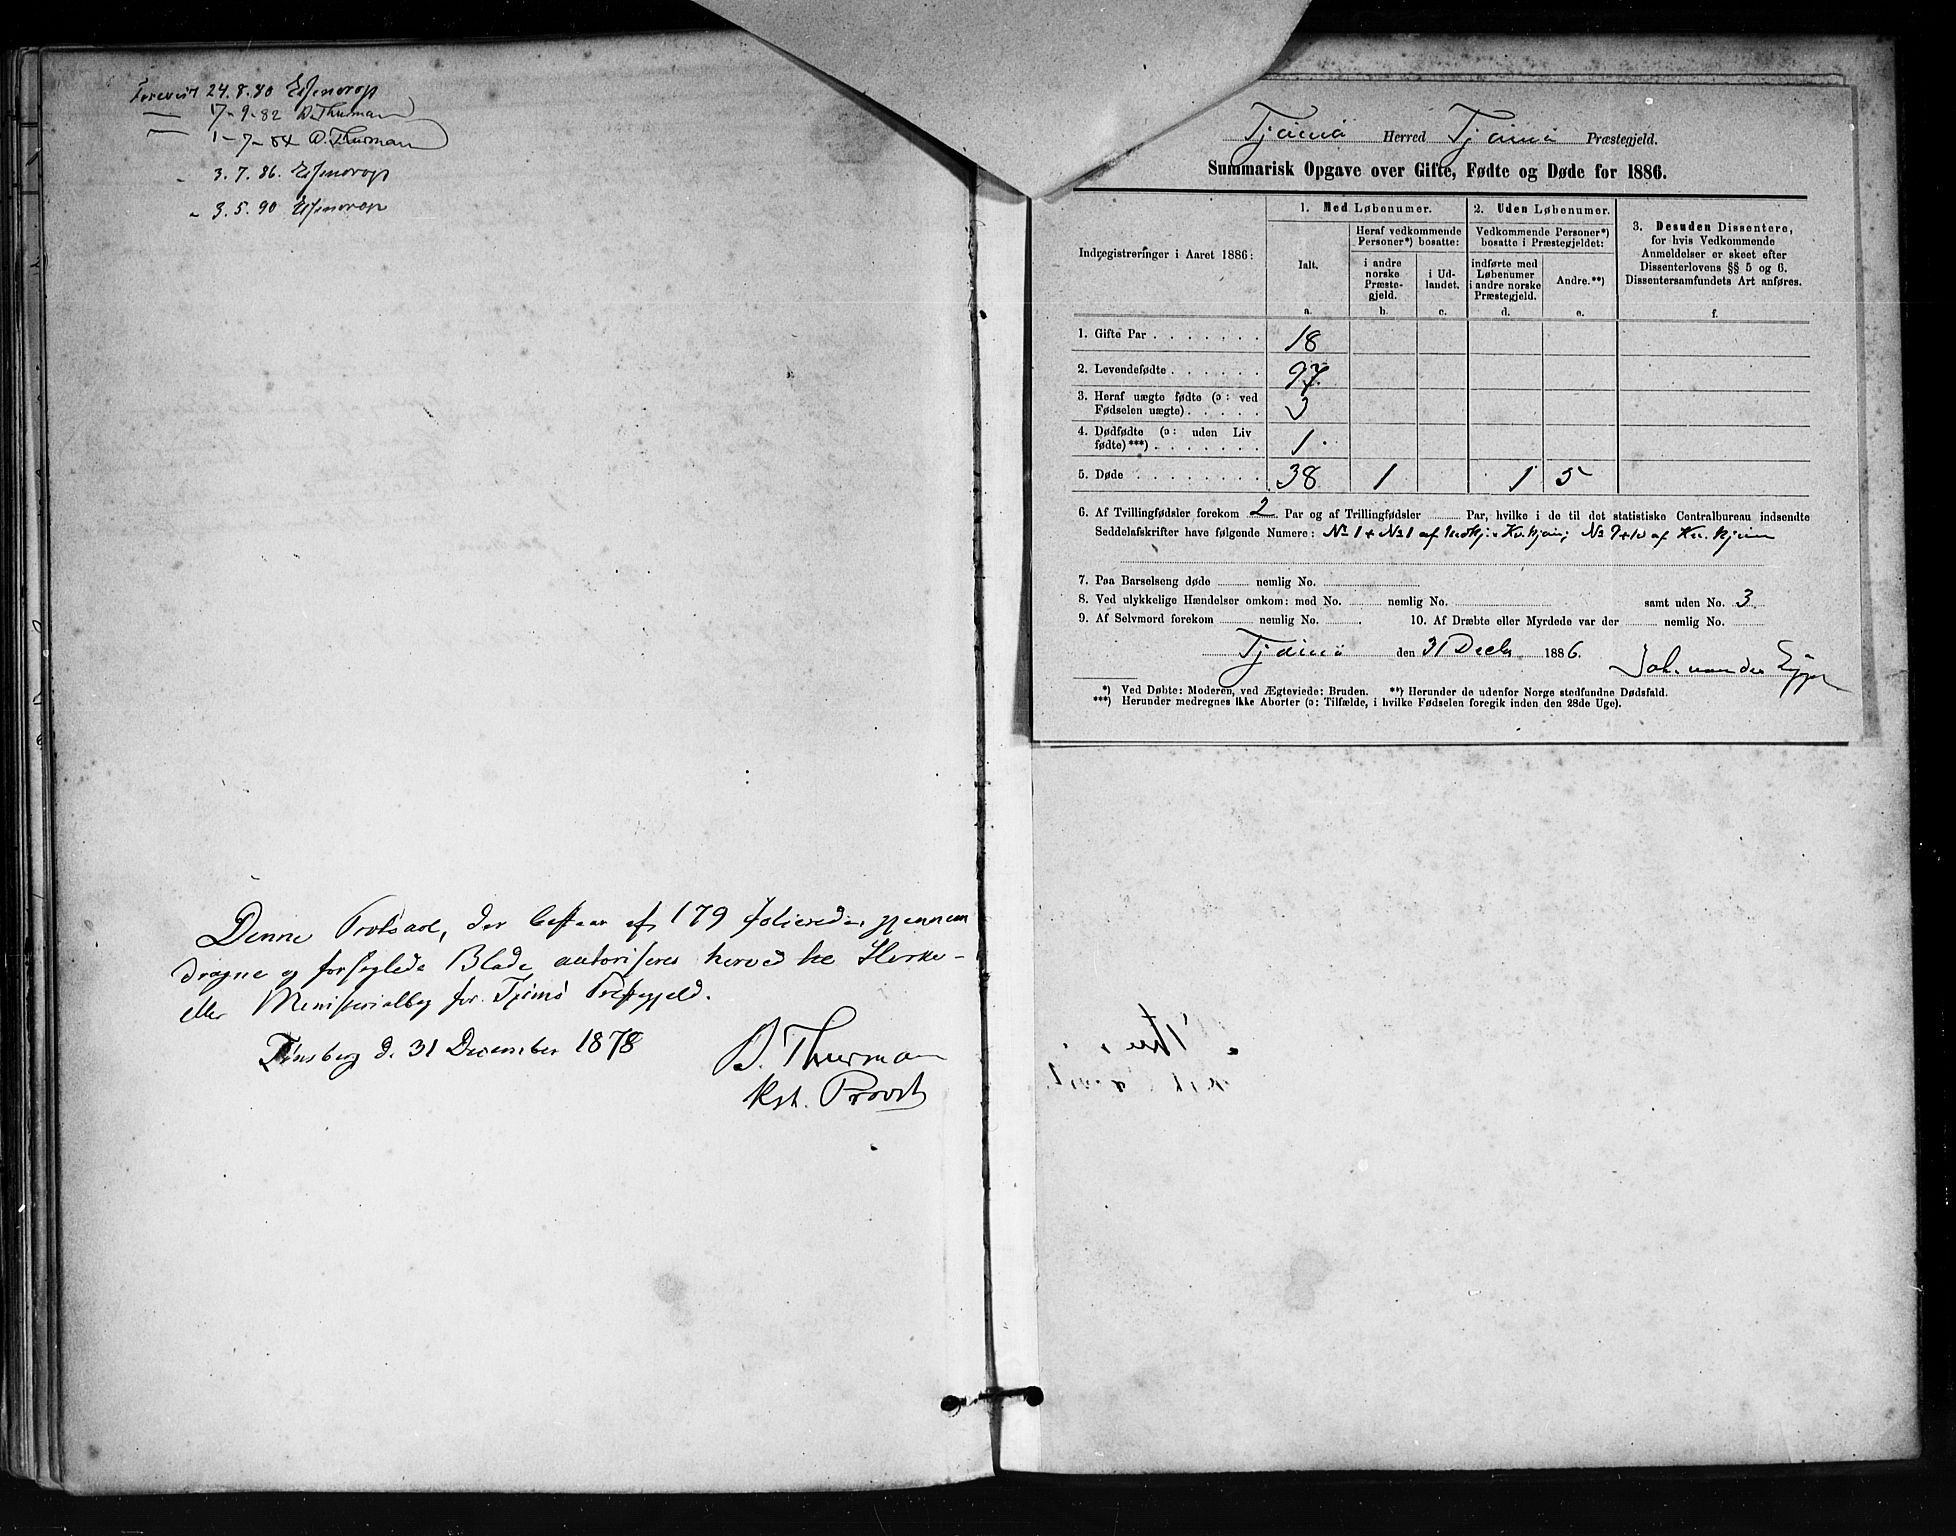 Forevist 24.8.80 Essendrop
— 17-9-82 D. Thurman
— 1-7-84 D. Thurman
" 3.7.86. Essendrop
" 3.5.90 Essendrop
Denne Protocol, der bestaar af 179 folierede, gjennem
dragne og forseglede Blade, autoriseres herved til Kirke-
eller Ministerialbog for Tjømø Præstegjeld.
Tønsberg d. 31 December 1878
D. Thurman
Kst. Provst
Tjømø Herred Tjømø Præstegjeld.
Summarisk Opgave over Gifte, Fødte og Døde for 1886.
Indregistreringer i Aaret 1886:
1. Med Løbenumer.
Ialt.
a.
Heraf vedkommende
Personer*) bosatte:
i andre
norske
Præste-
gjeld.
b.
i Ud-
landet.
c.
2. Uden Løbenumer.
Vedkommende Personer*)
bosatte i Præstegjeldet:
indførte med
Løbenumer
i andre norske
Præstegjeld.
d.
Andre.**)
e.
3. Desuden Dissentere,
for hvis Vedkommende
Anmeldelser er skeet efter
Dissenterlovens §§ 5 og 6.
Dissentersamfundets Art anføres.
f.
1. Gifte Par 18
2. Levendefødte 97
3. Heraf uægte fødte (ɔ: ved
Fødselen uægte) 3
4. Dødfødte (ɔ: uden Liv
fødte)***) 1
5. Døde 38 1 1 5
6. Af Tvillingfødsler forekom 2 Par og af Trillingfødsler Par, hvilke i de til det statistiske Centralbureau indsendte
Seddelafskrifter have følgende Numere: No 1 + No 1 af Mdkj. + Kv.kjøn; No 9+10 af Kv. kjøn
7. Paa Barselseng døde nemlig No.
8. Ved ulykkelige Hændelser omkom: med No. nemlig No. samt uden No. 3
9. Af Selvmord forekom nemlig No. 10. Af Dræbte eller Myrdede var der nemlig No.
Tjømø den 31 Decbr 1886.
*) Ved Døbte: Moderen, ved Ægteviede: Bruden. **) Herunder de udenfor Norge stedfundne Dødsfald.
***) Herunder medregnes ikke Aborter (ɔ: Tilfælde, i hvilke Fødselen foregik inden den 28de Uge).